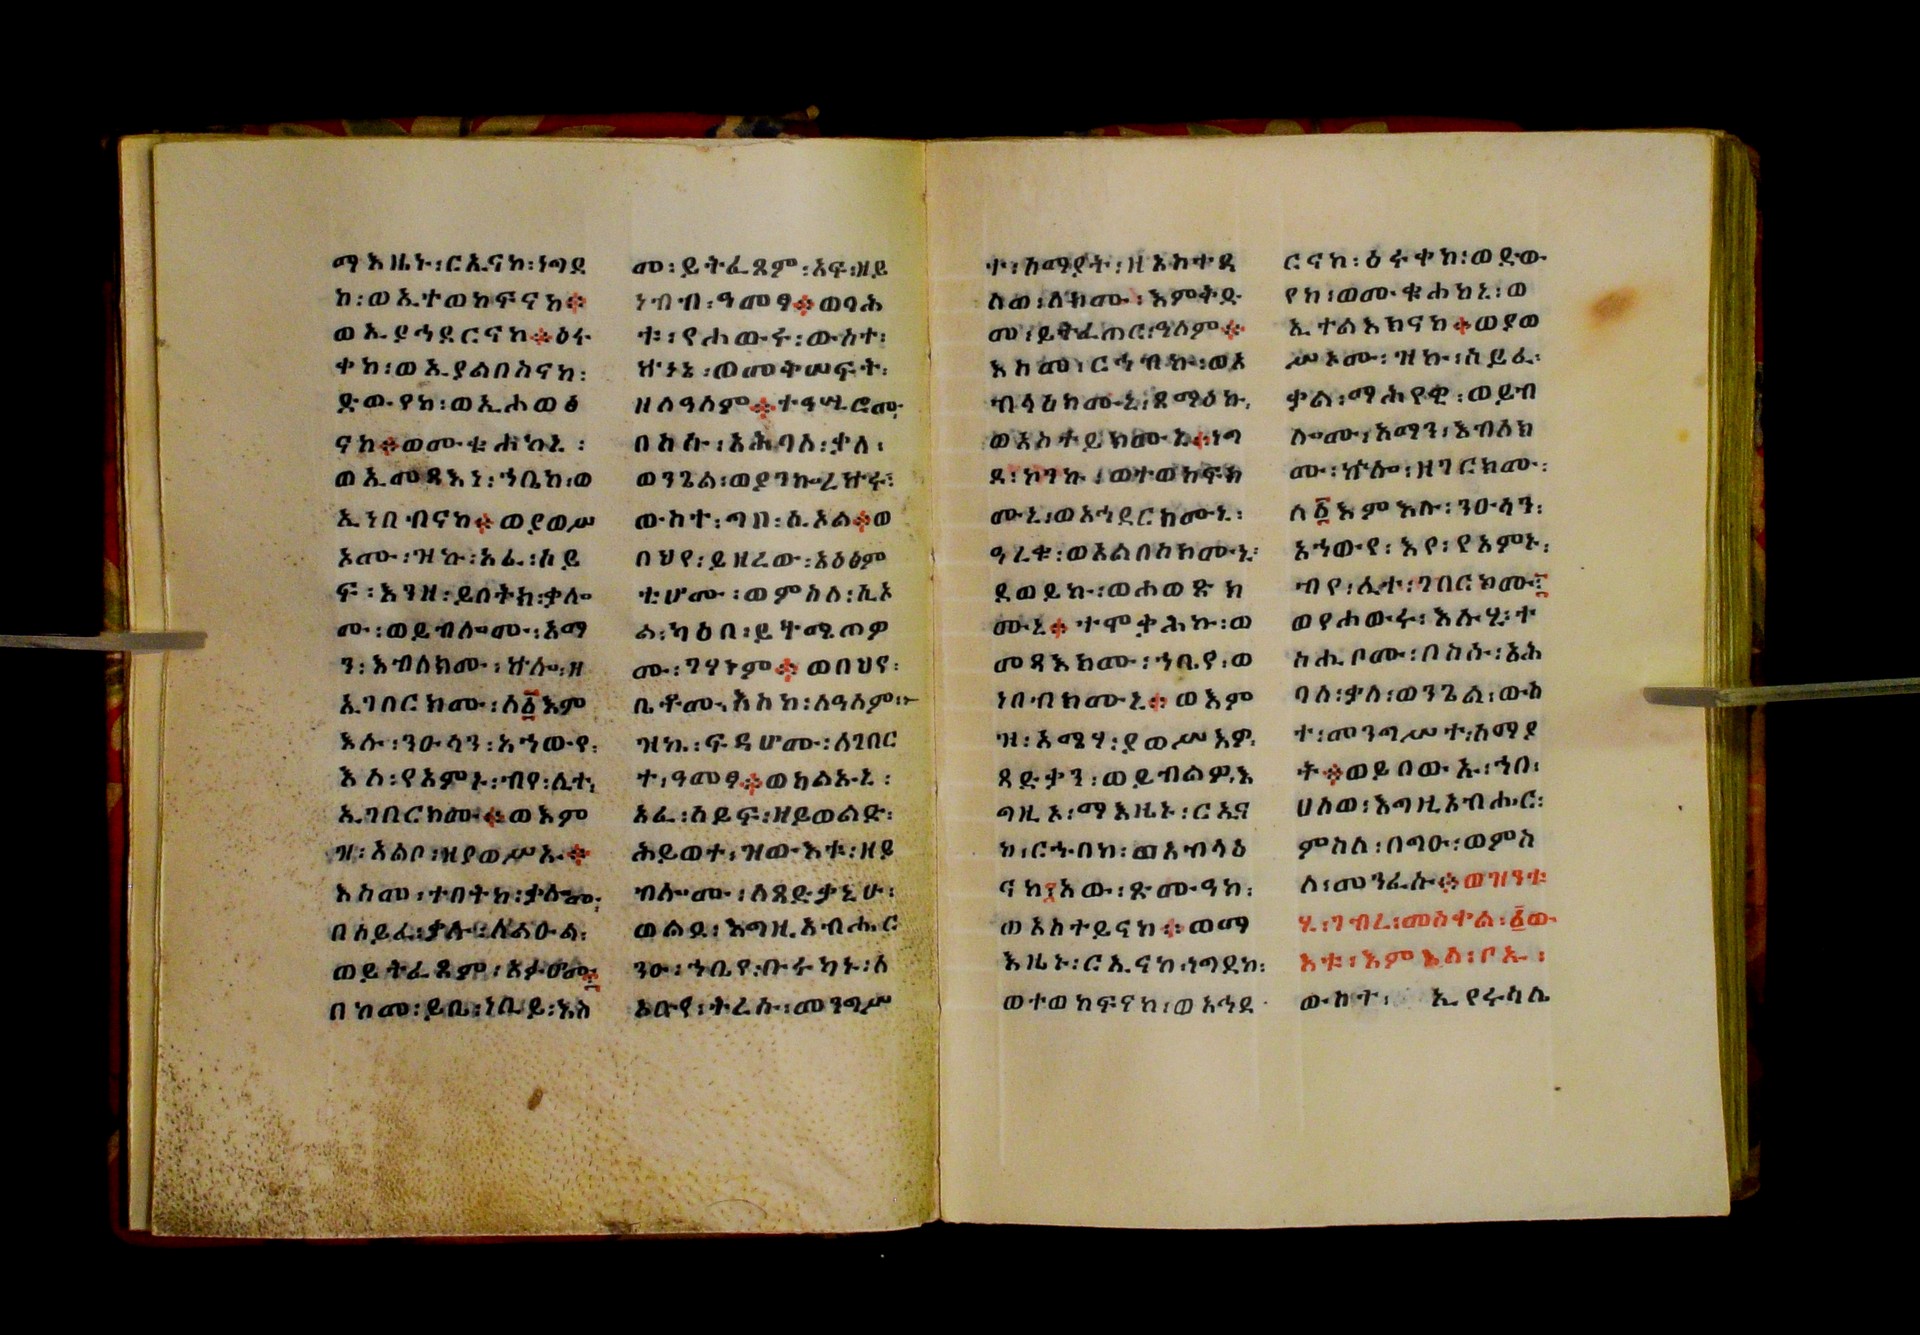 ማእዜኑ፡ርኢናከ፡ነግደ
ከ፡ወኢተወከፍናከ፨
ወኢያኅደርናከ፨ዕሩ
ቀከ፡ወኢያልበስናከ፡
ድውየከ፡ወኢሐወፅ
ናከ፨ወሙቁሐከኒ፡
ወኢመጻእነ፡ኀቤከ፡ወ
ኢነበብናከ፨ወያወሥ
ኦሙ፡ዝኩ፡አፈ፡ሰይ
ፍ፡እንዘ፡ይበትክ፡ቃሎ
ሙ፡ወይብሎሙ፡አማ
ን፡እብለክሙ፡ኵሎ፡ዘ
ኢገበርክሙ፡ለ፩እም
እሉ፡ንዑሳን፡አኀውየ፡
እለ፡የአምኑ፡ብየ፡ሊተ፡
ኢገበርክሙ፨ወእም
ዝ፡አልቦ፡ዘያወሥኡ፨
እስመ፡ተበትከ፡ቃሎሙ፡
በሰይፈ፡ቃሉ፡ለልዑል፡
ወይትፈጸም፡አፉሆሙ፡
በከመ፡ይቤ፡ነቢይ፡እስ
መ፡ይትፈጸም፡አፍ፡ዘይ
ነብብ፡ዓመፃ፨ወባሕ
ቱ፡የሐውሩ፡ውስተ፡
ኵነኔ፡ወመቅሠፍት፡
ዘለዓለም፨ተዓሢሮሙ፡
በከሱ፡አሕባለ፡ቃለ፡
ወንጌል፡ወይንኰረኵሩ፡
ውስተ፡ጣበ፡ሲኦል፨ወ
በህየ፡ይዘረው፡አዕፅም
ቲሆሙ፡ወምስለ፡ሲኦ
ል፡ካዕበ፡ይትሜጠዎ
ሙ፡ገሃነም፨ወበህየ፡
ቤቶሙ፡እስከ፡ለዓለም፡
ዝኬ፡ፍዳሆሙ፡ለገበር
ተ፡ዓመፃ፨ወከልኡኒ፡
አፈ፡ሰይፍ፡ዘይወልድ፡
ሕይወተ፡ዝውእቱ፡ዘይ
ብሎሙ፡ለጻድቃኒሁ፡
ወልደ፡እግዚአብሔር
ንዑ፡ኀቤየ፡ቡሩካኑ፡ለ
አቡየ፡ትረሱ፡መንግሥ
ተ፡ሰማያት፡ዘአስተዳ
ለወ፡ለክሙ፡እምቅድ
መ፡ይትፈጠር፡ዓለም፨
እስመ፡ርኅብኩ፡ወአ
ብላዕክሙኒ፡ጸማዕኩ፡
ወአስተይክሙኒ፨ነግ
ደ፡ኮንኩ፡ወተወከፍክ
ሙኒ፡ወአኅደርክሙኒ፡
ዓረቁ፡ወአልበስክሙኒ፡
ደወይኩ፡ወሐወጽክ
ሙኒ፨ተሞቃሕኩ፡ወ
መጻእክሙ፡ኀቤየ፡ወ
ነበብክሙኒ፨ወእም
ዝ፡አሜሃ፡ያወሥእዎ፡
ጻድቃን፡ወይብልዎ፡እ
ግዚኦ፡ማእዜኑ፡ርኢና
ከ፡ርኅበከ፡ወአብላዕ
ናከ፤አው፡ጽሙዓከ፡
ወአስተይናከ፨ወማ
እዜኑ፡ርኢናከ፡ነግደከ፡
ወተወከፍናከ፡ወአኅደ
ርናከ፡ዕሩቀከ፡ወድው
የከ፡ወሙቁሐከኒ፡ወ
ኢተልእክናከ፨ወያወ
ሥኦሙ፡ዝኩ፡ሰይፈ፡
ቃል፡ማሕየዊ፡ወይብ
ሎሙ፡አማን፡እብለክ
ሙ፡ኵሎ፡ዘገርክሙ፡
ለ፩እምእሉ፡ንዑሳን፡
አኀውየ፡እየ፡የአምኑ፡
ብየ፡ሊተ፡ገበርክሙ፤
ወየሐውሩ፡እሉሂ፡ተ
ስሒቦሙ፡በስሱ፡አሕ
ባለ፡ቃለ፡ወንጌል፡ውስ
ተ፡መንግሥተ፡ሰማያ
ት፨ወይበውኡ፡ኀበ፡
ሀለወ፡እግዚአብሔር፡
ምስለ፡በግዑ፡ወምስ
ለ፡መንፈሱ፨ወዝንቱ
ሂ፡ገብረ፡መስቀል፡፩ው
እቱ፡እምእለ፡ቦኡ፡
ውስተ፡ኢየሩሳሌ